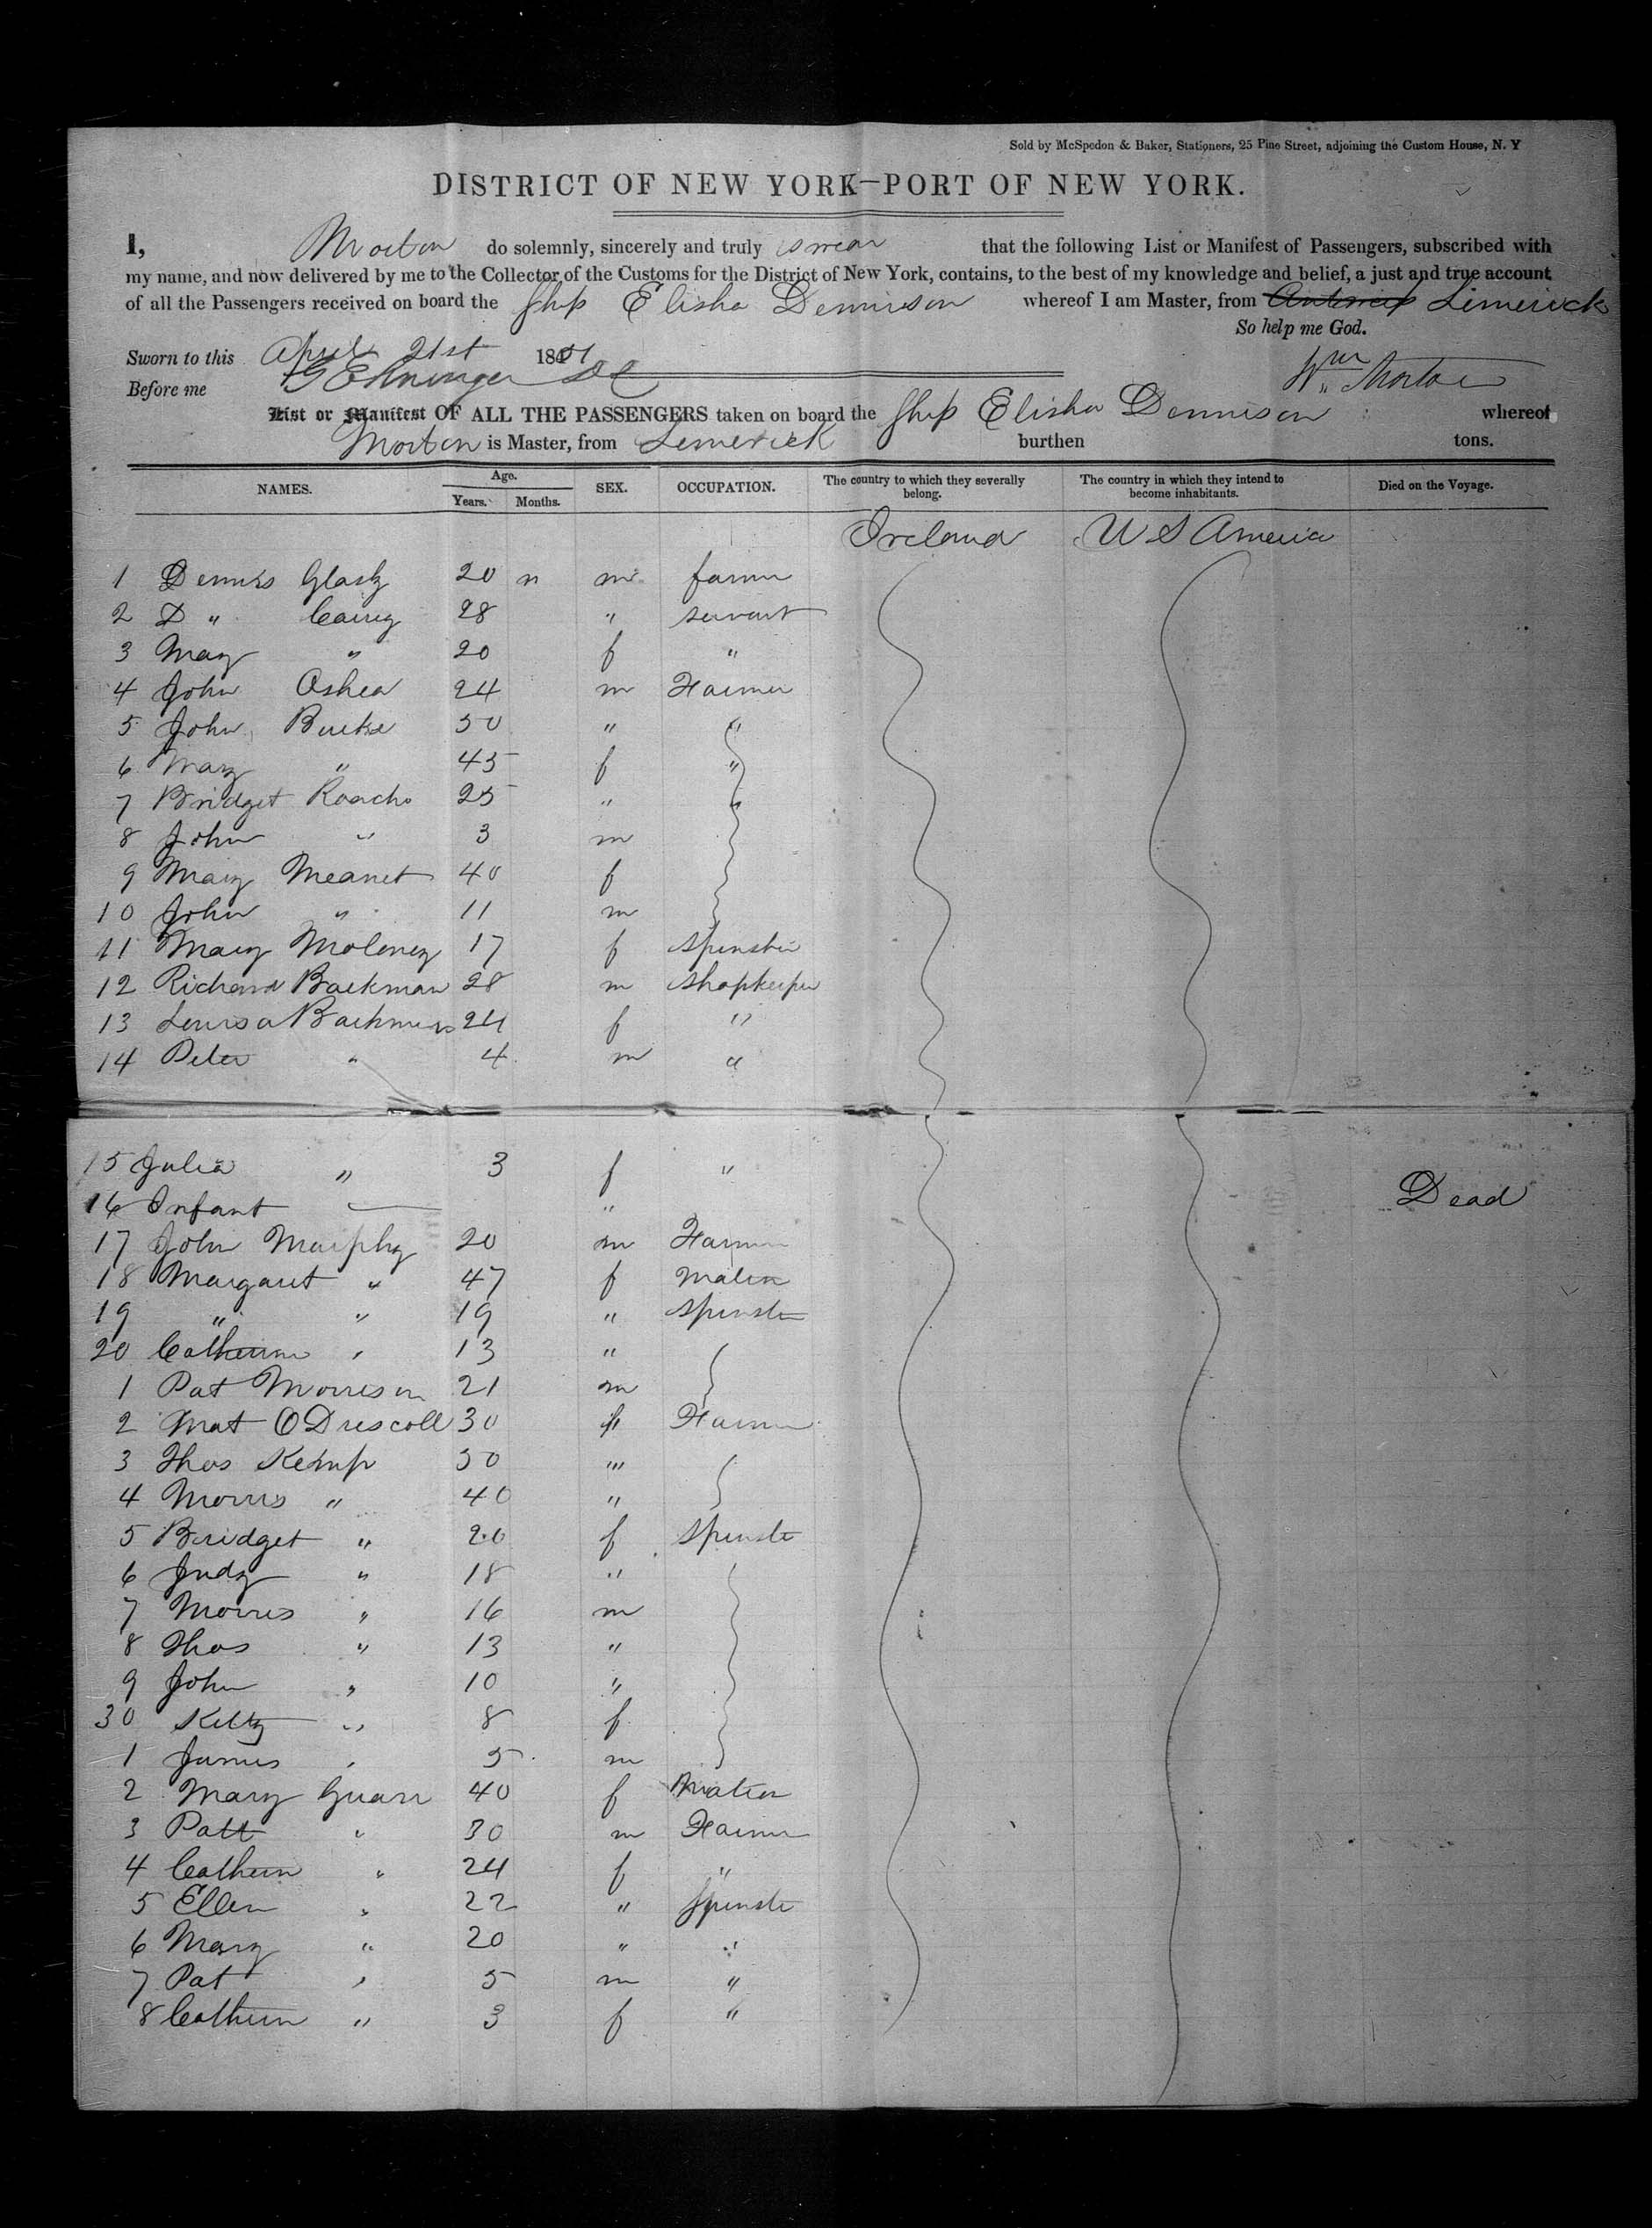 Sold by McSpedon & Baker, Stationers, 25 Pine Street, adjoining the Custom House, N. Y
DISTRICT OF NEW YORK—PORT OF NEW YORK.
I, Morton do solemnly, sincerely and truly swear that the following List or Manifest of Passengers, subscribed with
my name, and now delivered by me to the Collector of the Customs for the District of New York, contains, to the best of my knowledge and belief, a just and true account
of all the Passengers received on board the Ship Elisha Dennison whereof I am Master, from Limerick
So help me God.
Sworn to this April 21st 1851
Wm Morton
Before me
List or Manifest OF ALL THE PASSENGERS taken on board the Ship Elisha Dennison whereof
Morton is Master, from Limerick burthen tons.
NAMES. Age. Years. Months. SEX. OCCUPATION. The country to which they severally belong. The country in which they intend to become inhabitants. Died on the Voyage.
Ireland U S America
1 Dennis 20 m farmer
2 D " Carey 28 " servant
3 Mary " 20 f "
4 John Oshea 24 m Farmer
5 John Burke 50 " "
6 Mary " 45 f "
7 Bridget Roache 25 " "
8 John " 3 m
9 Mary Meanet 40 f
10 John " 11 m
11 Mary Moloney 17 f spinster
12 Richard Backman 28 m shopkeeper
13 Louisa Backman 24 f "
14 Peter " 4 m "
15 Julia " 3 f "
16 Infant " Dead
17 John Murphy 20 m Farmer
18 Margaret " 47 f Matron
19 " " 19 " spinster
20 Catherine " 13 "
1 Pat Morrison 21 m
2 Mat O Driscoll 30 " Farmer
3 Thos Kemp 50 "
4 Morris " 40 "
5 Bridget " 20 f spinste
6 Judy " 18 "
7 Morris " 16 m
8 Thos " 13 "
9 John " 10 "
30 Kitty " 8 f
1 James " 5 m
2 Mary Guarr 40 f Matron
3 Patt " 30 m Farmer
4 Cathern " 24 f "
5 Ellen " 22 " spinste
6 Mary " 20 " "
7 Pat " 5 m "
8 Cathern " 3 f "